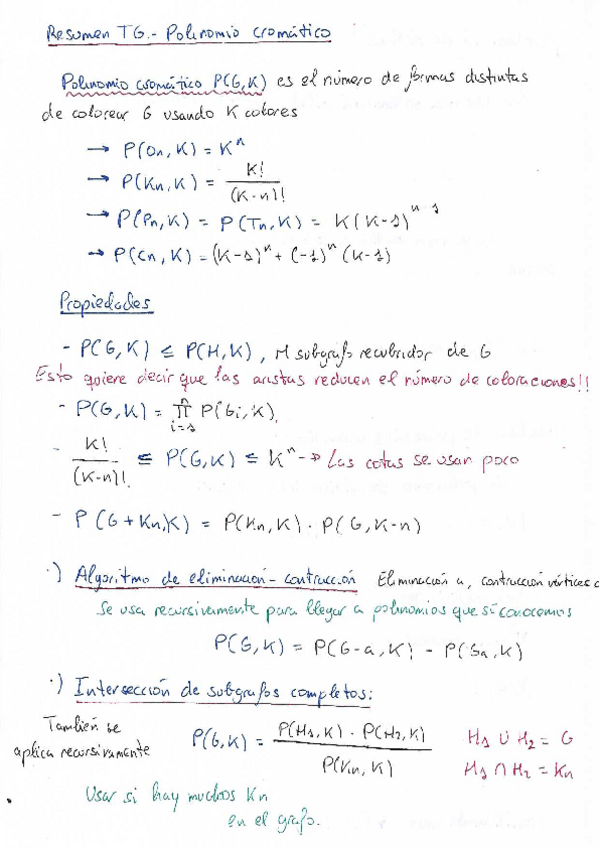 Resumen TG.- Polinomio cromático
Polinomio cromático P(G,K) es el número de formas distintas
de colorear G usando K colores
→ P(On, K) = K^n
→ P(Kn, K) = K! / (K-n)!
→ P(Pn, K) = P(Tn, K) = K(K-1)^n-1
→ P(Cn, K) = (K-1)^n + (-1)^n (K-1)
Propiedades
- P(G,K) ≤ P(H,K), H subgrafo recubridor de G
Esto quiere decir que las aristas reducen el número de coloraciones!!
- P(G,K) = ∏ i=1 n P(Gi, K).
- K! / (K-n)! ≤ P(G,K) ≤ K^n → Las cotas se usan poco
- P(G+Kn,K) = P(Kn,K) · P(G,K-n)
·) Algoritmo de eliminación-contracción Eliminación a, contracción vértices
Se usa recursivamente para llegar a polinomios que sí conocemos
P(G,K) = P(G-a,K) - P(Ga,K)
·) Intersección de subgrafos completos:
También se
aplica recursivamente
P(G,K) = P(H1,K) · P(H2,K) / P(Kn,K)
H1 ∪ H2 = G
H1 ∩ H2 = Kn
Usar si hay muchos Kn
en el grafo.